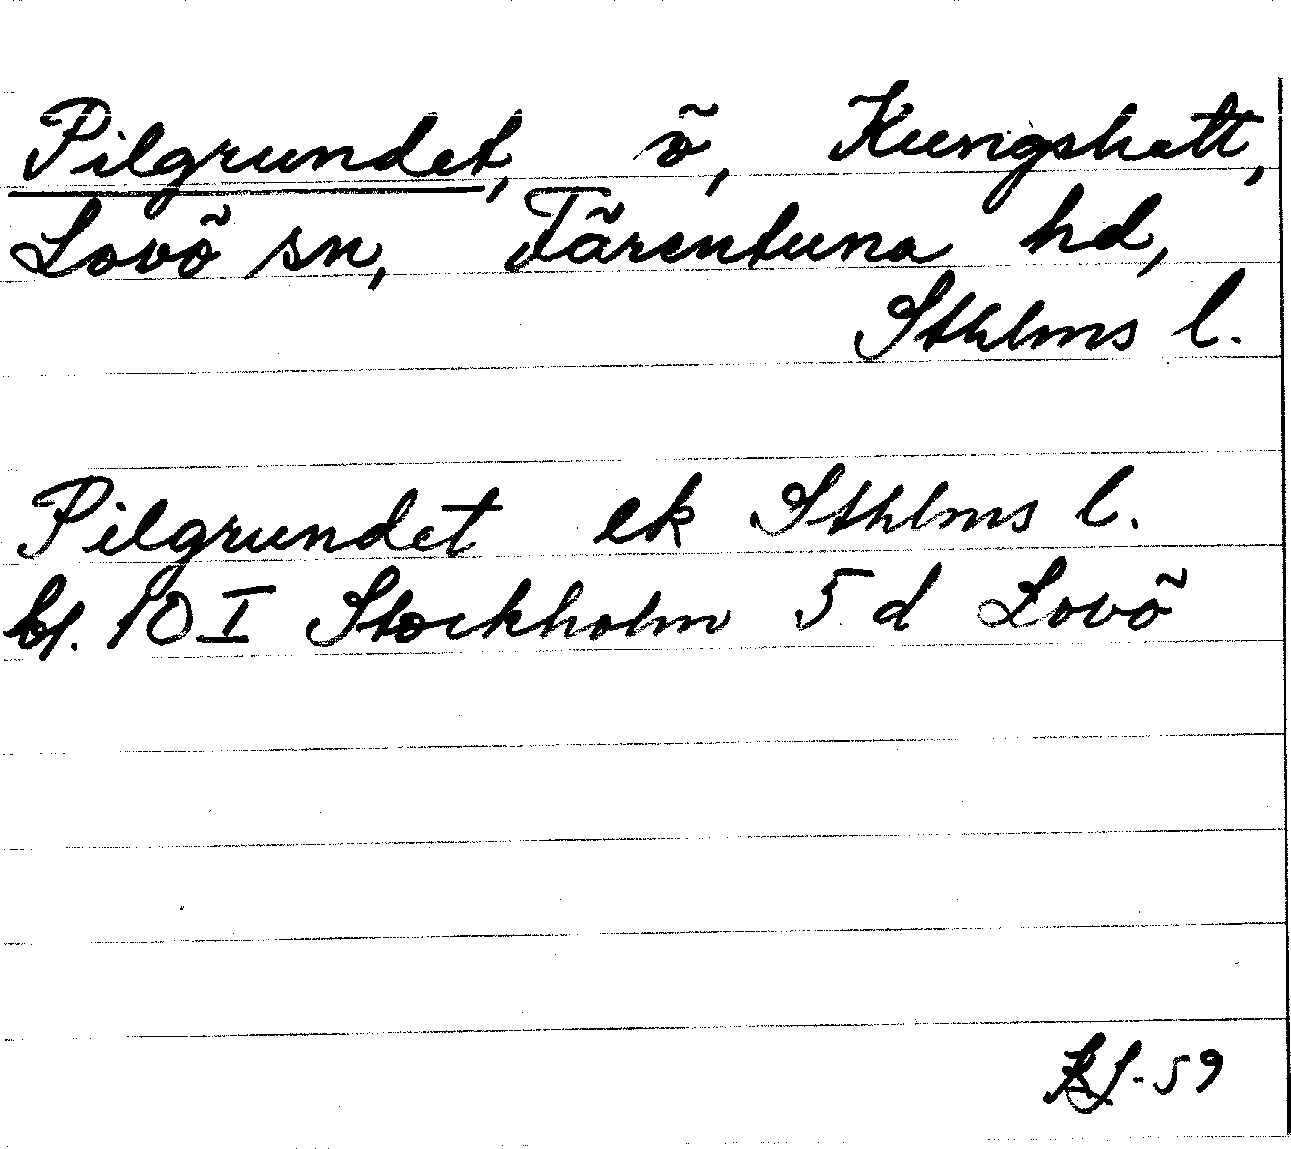 Pilgrundet, ö, Kungshatt,
Lovö sn, Färentuna hd,
Sthlms l.
Pilgrundet ek Sthlms l.
bl. 10 I Stockholm 5 d Lovö
-59